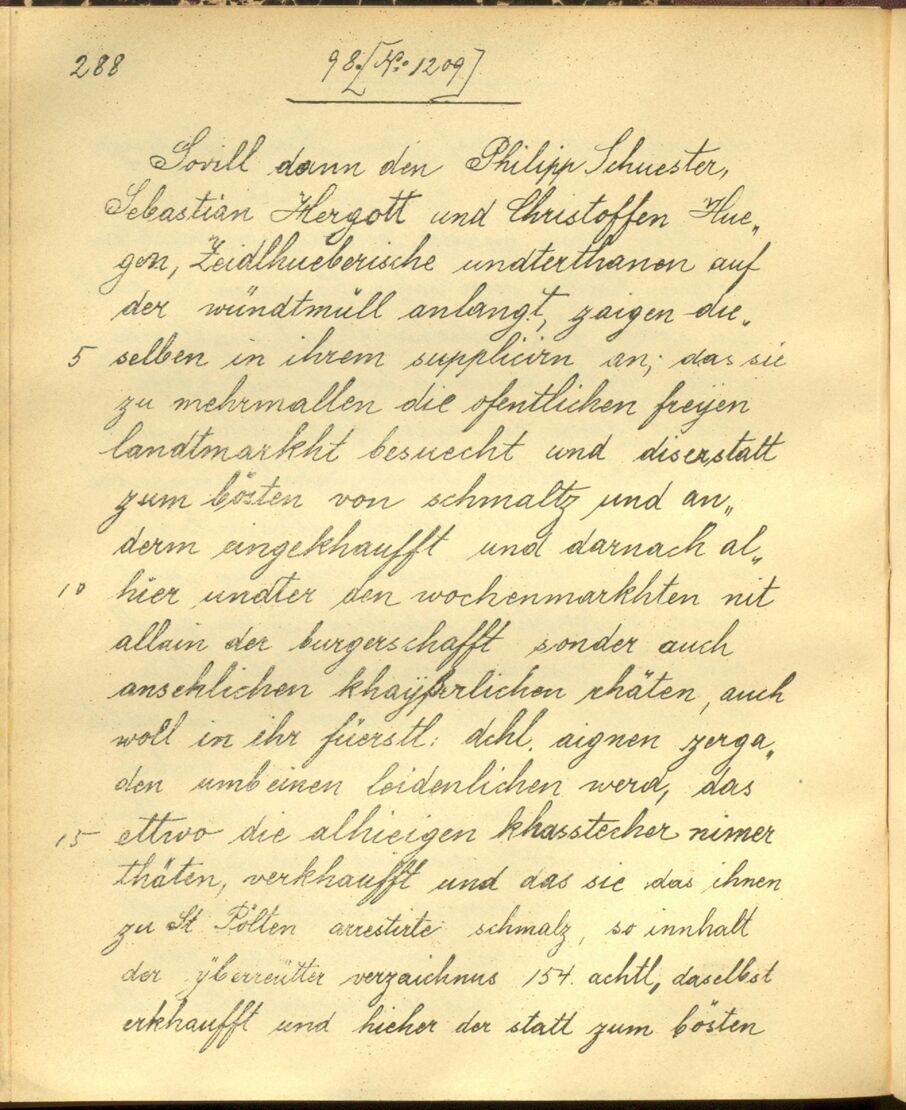 288
98.[No 1209]
Sovill dann den Philipp Schuester,
Sebastian Hergott und Christoffen Hue„
gen, Zeidlhueberische undterthanen auf
der wündtmüll anlangt, zaigen die„
5 selben in ihrem supplicirn an; das sie
zu mehrmallen die ofentlichen freyen
landtmarkht besuecht und diserstatt
zum bösten von schmaltz und an„
derm eingekhaufft und darnach al„
10 hier undter den wochenmarkhten nit
allain der burgerschafft sonder auch
ansehlichen khaÿßerlichen rhäten, auch
woll in ihr füerstl: dchl. aignen zerga„
den umb einen leidenlichen werd, das
15 ettwo die alhieigen khasstecher nimer
thäten, verkhaufft und das sie das ihnen
zu St Pölten arrestirte schmalz, so innhalt
der ÿberreütter verzaichnus 154 achtl, daselbst
erkhaufft und hieher der statt zum bösten